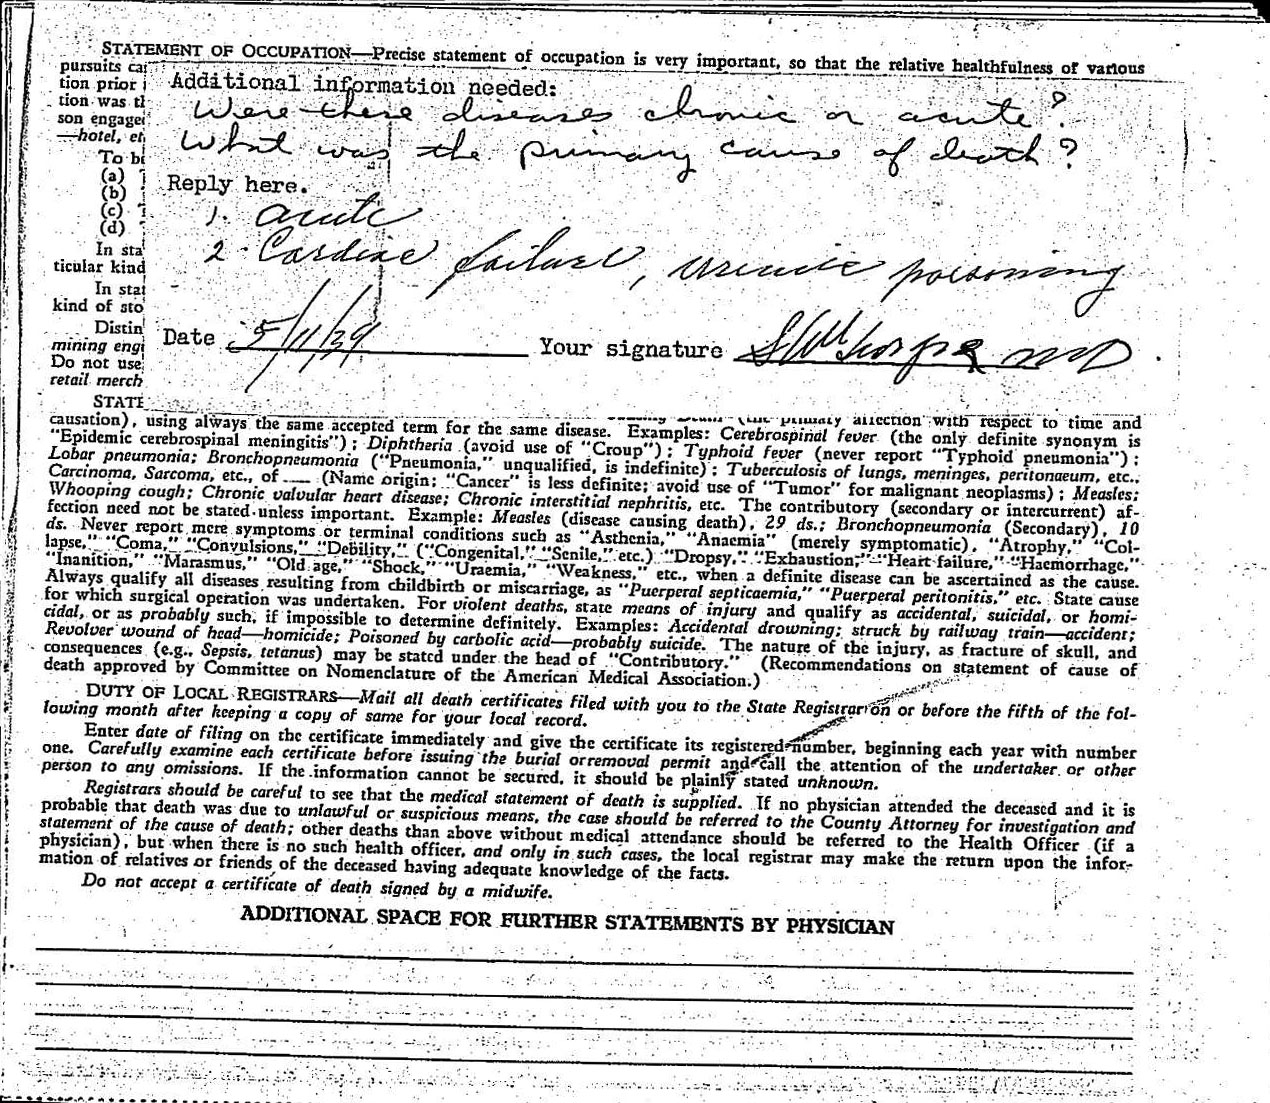 STATEMENT OF OCCUPATION—Precise statement of occupation is very important, so that the relative healthfulness of various
pursuits ca
tion prior
tion was th
son engage
—hotel, et
To b
(a)
(b)
(c)
(d)
In sta
ticular kind
In stat
kind of sto
Distin
mining engi
Do not use
retail merch
STATE
Additional information needed:
Were these diseases chronic or acute?
What was the primary cause of death?
Reply here.
1. acute
2. Cardiac failure, uremic poisoning
Date 5/11/39 Your signature MD
(the primary affection with respect to time and
causation), using always the same accepted term for the same disease. Examples: Cerebrospinal fever (the only definite synonym is
"Epidemic cerebrospinal meningitis"); Diphtheria (avoid use of "Croup"); Typhoid fever (never report "Typhoid pneumonia");
Lobar pneumonia; Bronchopneumonia ("Pneumonia," unqualified, is indefinite); Tuberculosis of lungs, meninges, peritonaeum, etc.,
Carcinoma, Sarcoma, etc., of ___ (Name origin; "Cancer" is less definite; avoid use of "Tumor" for malignant neoplasms); Measles;
Whooping cough; Chronic valvular heart disease; Chronic interstitial nephritis, etc. The contributory (secondary or intercurrent) af-
fection need not be stated unless important. Example: Measles (disease causing death), 29 ds.; Bronchopneumonia (Secondary), 10
ds. Never report mere symptoms or terminal conditions such as "Asthenia," "Anaemia" (merely symptomatic), "Atrophy," "Col-
lapse," "Coma," "Convulsions," "Debility," ("Congenital," "Senile," etc.) "Dropsy," "Exhaustion," "Heart failure," "Haemorrhage,"
"Inanition," "Marasmus," "Old age," "Shock," "Uraemia," "Weakness," etc., when a definite disease can be ascertained as the cause.
Always qualify all diseases resulting from childbirth or miscarriage, as "Puerperal septicaemia," "Puerperal peritonitis," etc. State cause
for which surgical operation was undertaken. For violent deaths, state means of injury and qualify as accidental, suicidal, or homi-
cidal, or as probably such, if impossible to determine definitely. Examples: Accidental drowning; struck by railway train—accident;
Revolver wound of head—homicide; Poisoned by carbolic acid—probably suicide. The nature of the injury, as fracture of skull, and
consequences (e.g., Sepsis, tetanus) may be stated under the head of "Contributory." (Recommendations on statement of cause of
death approved by Committee on Nomenclature of the American Medical Association.)
DUTY OF LOCAL REGISTRARS—Mail all death certificates filed with you to the State Registrar on or before the fifth of the fol-
lowing month after keeping a copy of same for your local record.
Enter date of filing on the certificate immediately and give the certificate its registered number, beginning each year with number
one. Carefully examine each certificate before issuing the burial or removal permit and call the attention of the undertaker or other
person to any omissions. If the information cannot be secured, it should be plainly stated unknown.
Registrars should be careful to see that the medical statement of death is supplied. If no physician attended the deceased and it is
probable that death was due to unlawful or suspicious means, the case should be referred to the County Attorney for investigation and
statement of the cause of death; other deaths than above without medical attendance should be referred to the Health Officer (if a
physician), but when there is no such health officer, and only in such cases, the local registrar may make the return upon the infor-
mation of relatives or friends of the deceased having adequate knowledge of the facts.
Do not accept a certificate of death signed by a midwife.
ADDITIONAL SPACE FOR FURTHER STATEMENTS BY PHYSICIAN